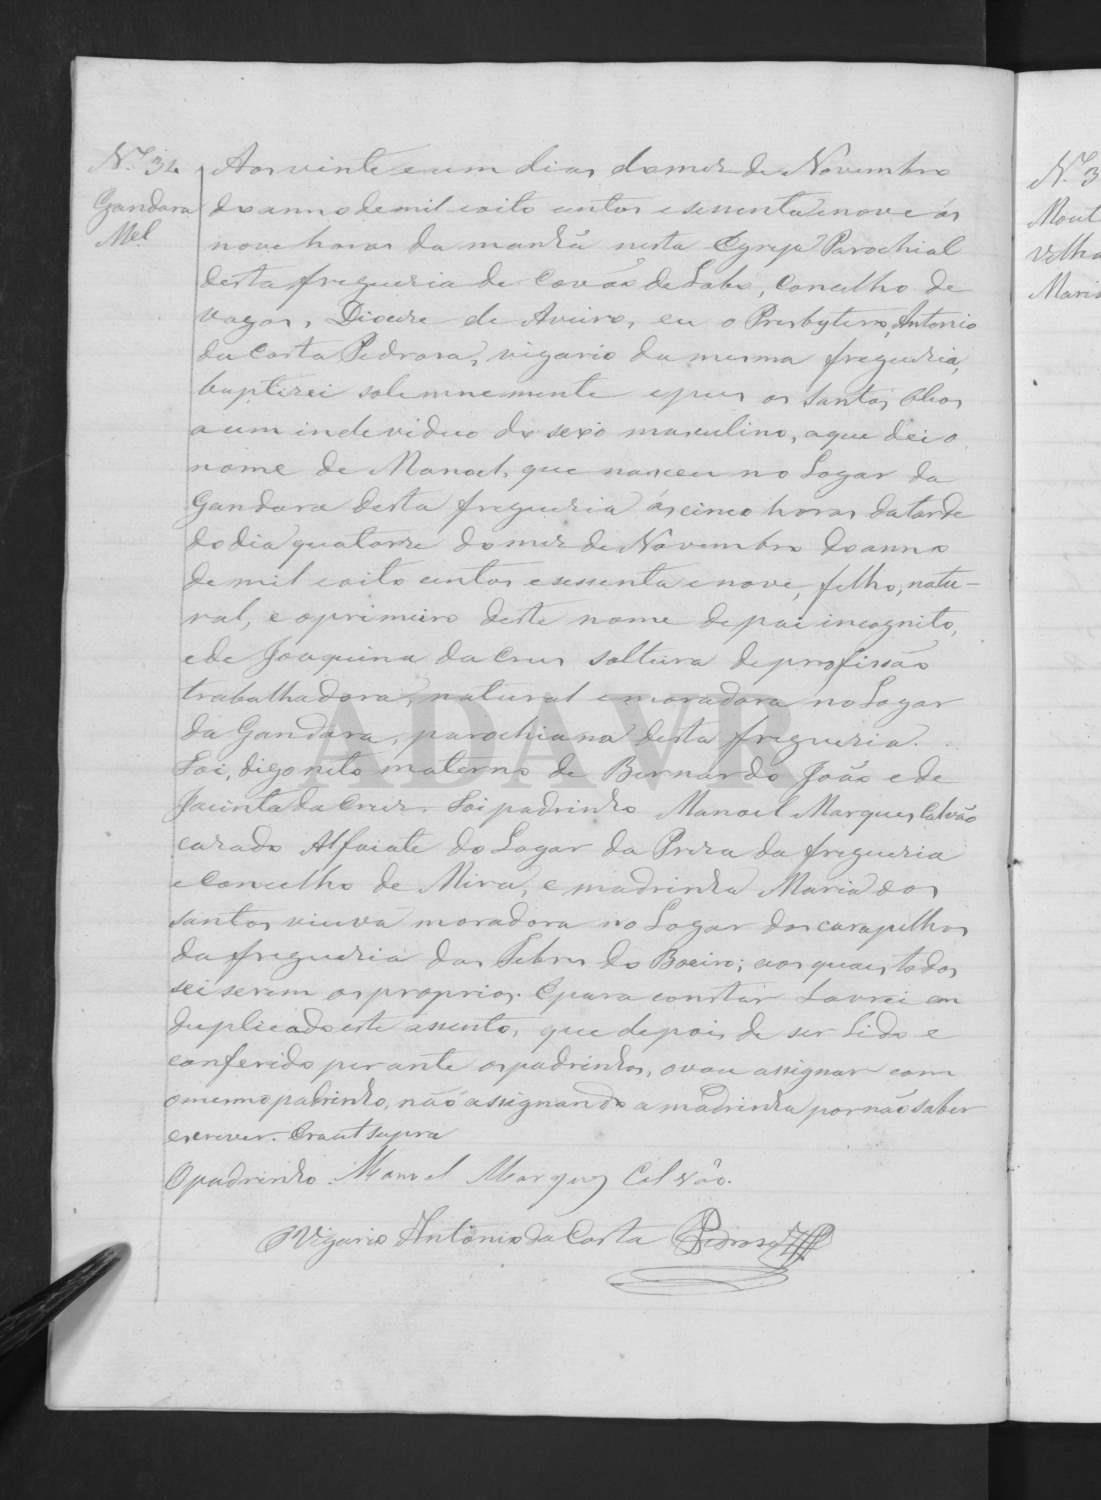 Nº 34
Gandara
Mel
Aos vinte e um dias do mez de Novembro
do anno de mil e oito centos e sessenta e nove ás
nove horas da manhã nesta Egreja Parochial
desta freguezia de Covão de Lobo, Concelho de
Vagos, Diocese de Aveiro, eu o Presbytero, Antonio
da Costa Pedrosa, vigario da mesma freguezia,
baptizei solemnemente e puz os Santos Oleos
a um individuo do sexo masculino, a que dei o
nome de Manoel, que nasceu no Logar da
Gandara desta freguezia ás cinco horas da tarde
do dia quatorze do mez de Novembro do anno
de mil e oito centos e sessenta e nove, filho, natu-
ral, e o primeiro deste nome de pai incognito,
e de Joaquina da Cruz solteira de profissão
trabalhadora, natural e moradora no Logar
da Gandara, parochiana desta freguezia.
Foi, digo neto materno de Bernardo João e de
Jacinta da Cruz. Foi padrinho Manoel Marques Calvão
cazado Alfaiate do Logar da Preza da freguezia
e Concelho de Mira, e madrinha Maria dos
Santos viuva moradora no Logar dos Carapelhos
da freguezia das Febres do Boeiro; aos quaes todos
sei serem os proprios. E para constar Lavrei em
duplicado este assento, que depois de ser Lido e
conferido perante os padrinhos, o vou assignar com
o mesmo padrinho, não assignando a madrinha por não saber
escrever. Era ut supra
O padrinho. Manoel Marques Calvão.
O Vigario Antonio da Costa Pedrosa
Nº 3
Mont
Velha
Maria
ADAVR